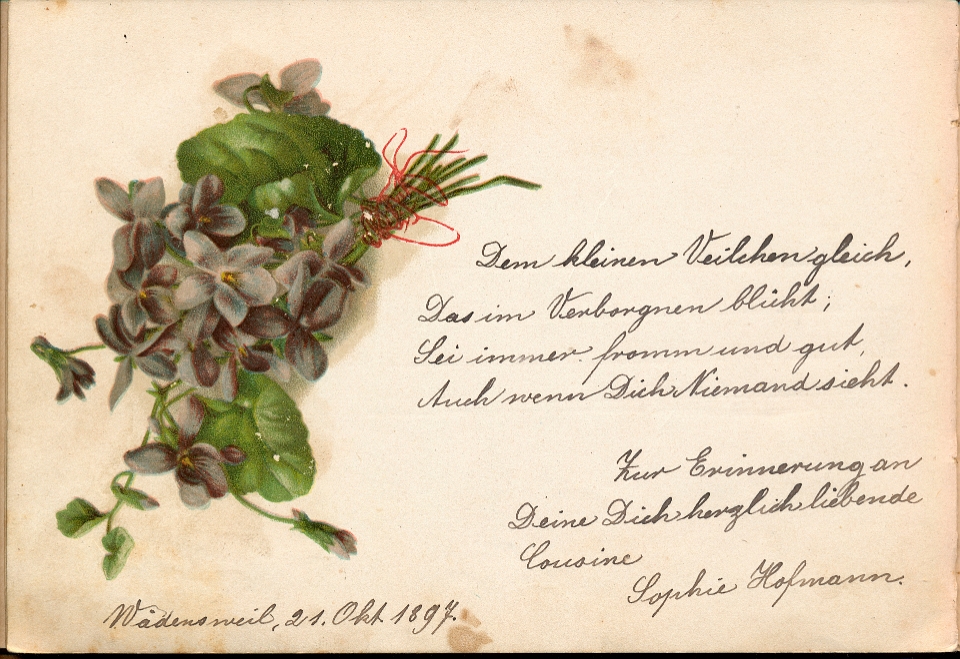 Dem kleinen Veilchen gleich,
Das im Verborgnen blüht;
Sei immer fromm und gut,
Auch wenn Dich Niemand sieht.
Zur Erinnerung an
Deine Dich herzlich liebende
Cousine
Sophie Hofmann.
Wädensweil, 21. Okt 1897.